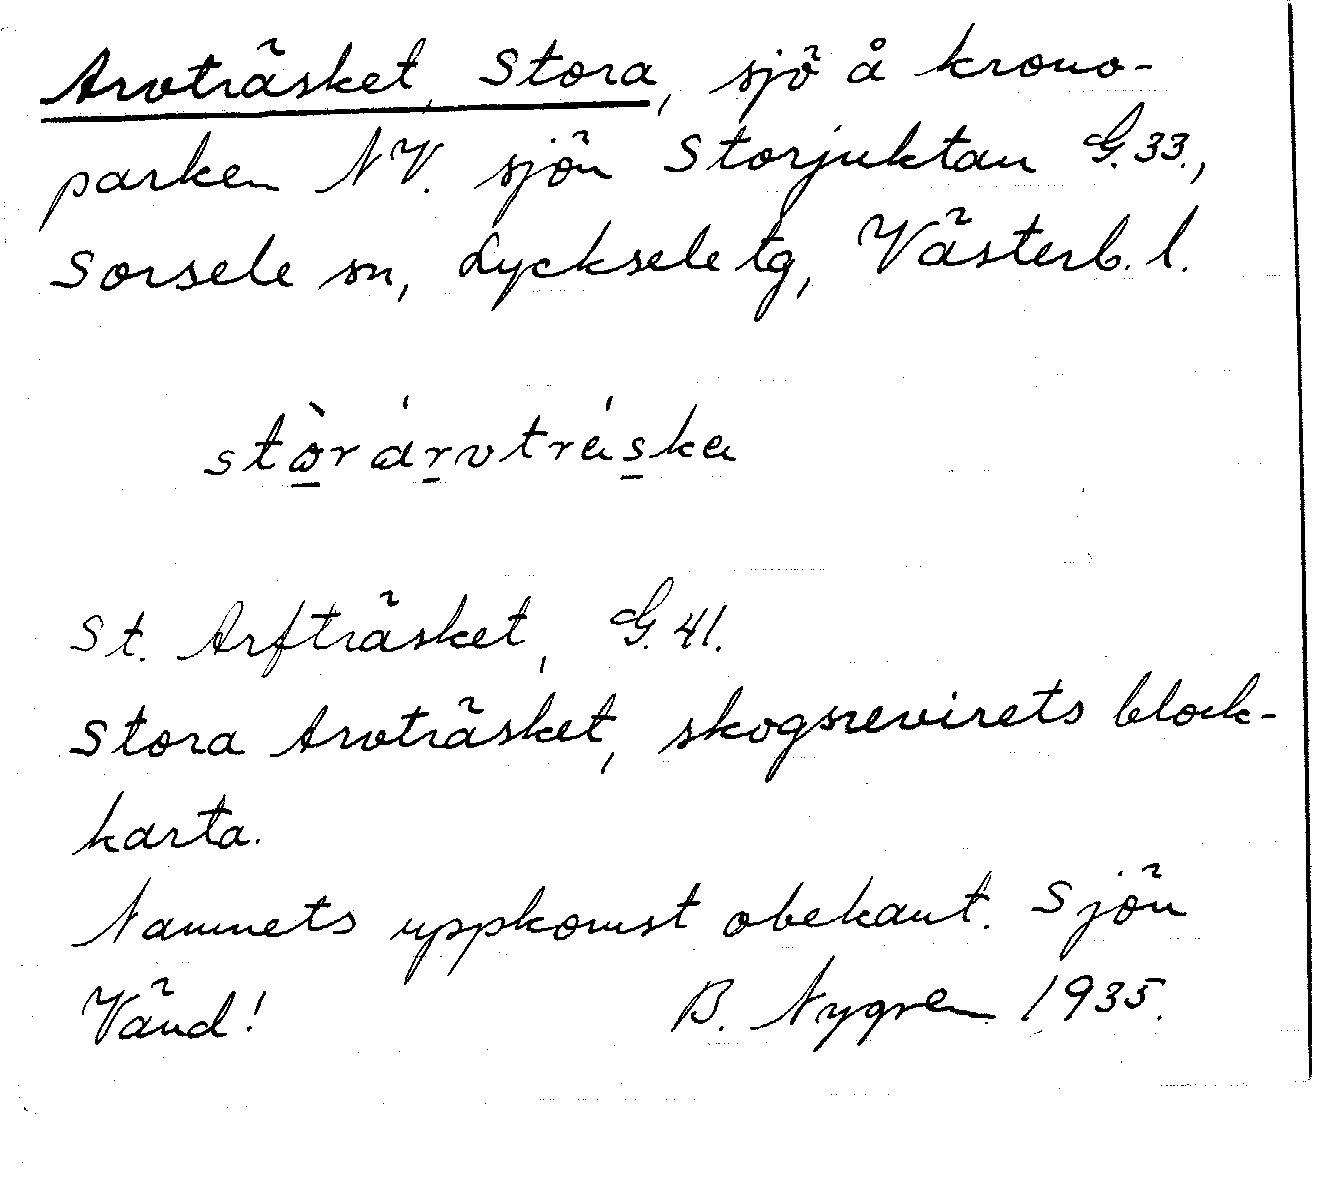 Arvträsket, Stora, sjö å krono-
parken NV. sjön Storjuktan G. 33.,
Sorsele sn, Lycksele tg, Västerb. l.
St. Arfträsket, G. 41.
Stora Arvträsket, skogsrevirets block-
karta.
Namnets uppkomst obekant. Sjön
Vänd! B. Nygren 1935.